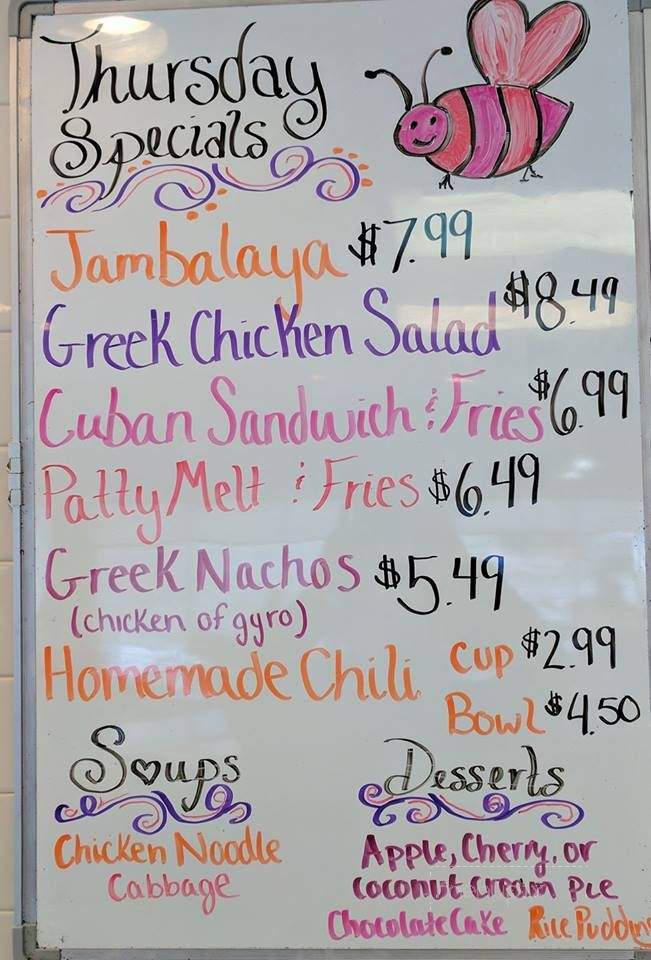 Thursday
Specials
Jambalaya $7.99
Greek Chicken Salad $8.49
Cuban Sandwich & Fries $6.99
Patty Melt & Fries $6.49
Greek Nachos $5.49
(chicken of gyro)
Homemade Chili Cup $2.99
Bowl $4.50
Soups
Chicken Noodle
Cabbage
Desserts
Apple, Cherry, or
Coconut Cream Pie
Chocolate Cake Rice Pudding